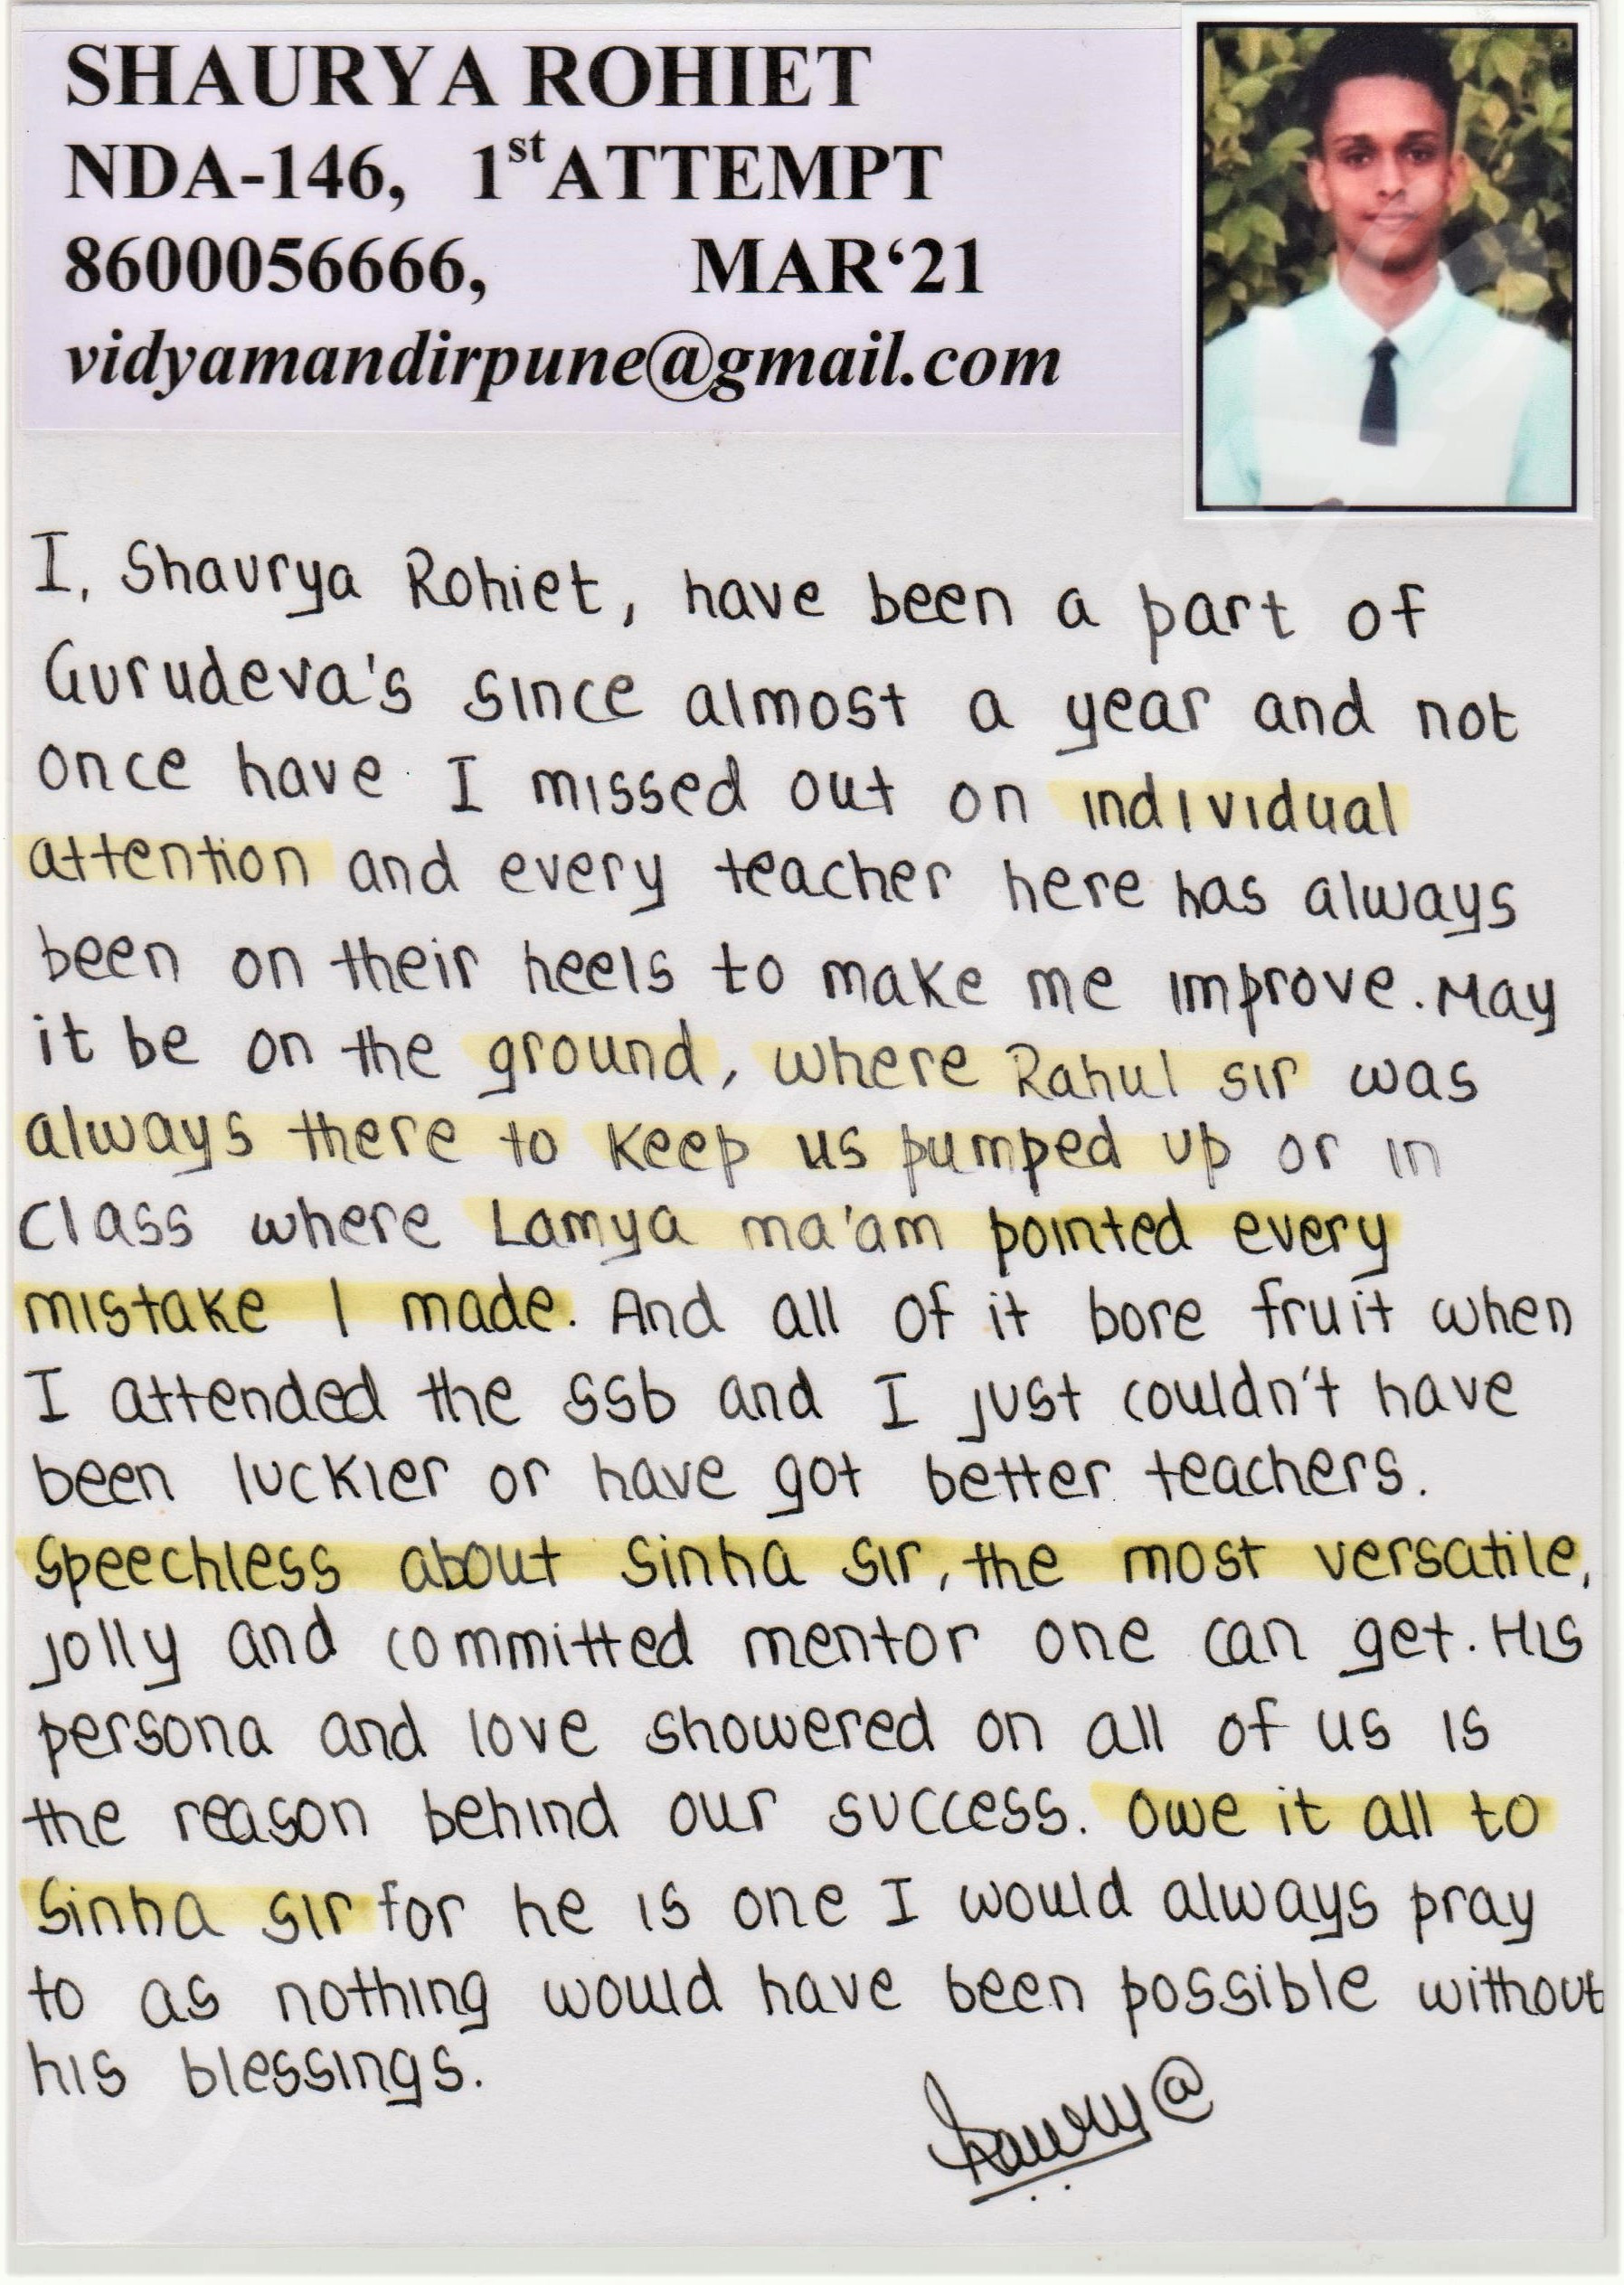 SHAURYA ROHIET
NDA-146, 1st ATTEMPT
8600056666, MAR‘21
vidyamandirpune@gmail.com
I, Shaurya Rohiet, have been a part of
Gurudeva's since almost a year and not
once have I missed out on individual
attention and every teacher here has always
been on their heels to make me improve. May
it be on the ground, where Rahul sir was
always there to keep us pumped up or in
class where Lamya ma'am pointed every
mistake I made. And all of it bore fruit when
I attended the ssb and I just couldn't have
been luckier or have got better teachers.
Speechless about Sinha sir, the most versatile,
jolly and committed mentor one can get. His
persona and love showered on all of us is
the reason behind our success. Owe it all to
Sinha sir for he is one I would always pray
to as nothing would have been possible without
his blessings.
Shaury@